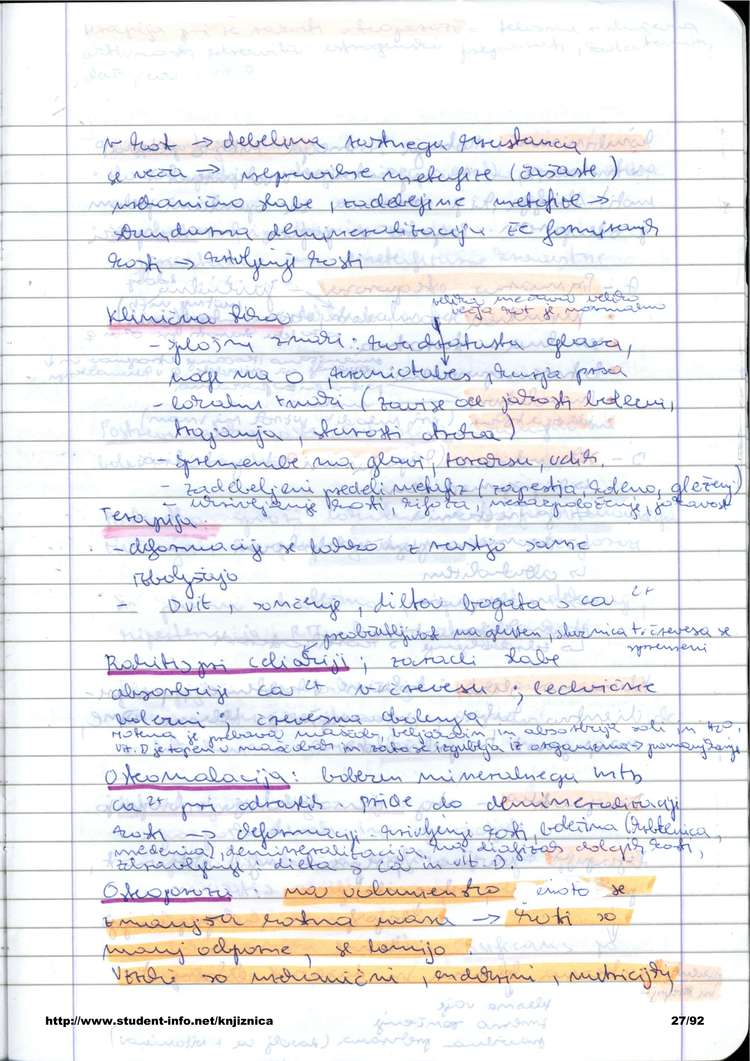 v kost → debelina rastnega hrustanca
je večja → nepravilne metafize (čašaste)
mehanično slabe, zadebeljene metafize →
demineralizacija že formiranih
kosti → krivljenje kosti
Klinična slika
velika mečava veliko
večja kot je normalno
- splošni znaki: kvadratasta glava,
noge na O, kraniotabes, kurja prsa
- lokalni znaki (zavise od jakosti bolezni,
trajanja, starosti otroka)
- spremembe na glavi, toraksu, udih.
- zadebeljeni predeli metafiz (zapestja, koleno, gleženj)
- ukrivljanje kosti, kifoza, nerazpoloženje, jokavost
Terapija:
- deformacije se lahko z rastjo same
izboljšajo
- D vit, sončenje, dieta bogata s Ca 2+
preobčutljivost na gluten, sluznica t. črevesa se
spremeni
Rahitis pri celiakiji; zaradi slabe
absorbcije Ca 2+ v črevesu; ledvične
bolezni; črevesna obolenja
Motena je prebava maščob, beljakovin, in absorbcija soli in H2O.
Vit. D je topen v maščobah in zato se izgublja iz organizma → pomanjkanje
Osteomalacija: bolezen mineralnega mtb
Ca 2+ pri odraslih. Pride do demineralizacije
kosti → deformacije. krivljenje kosti, bolečina (hrbtenica,
medenica), demineralizacija na diafizah dolgih kosti,
zdravljenje: dieta s Ca in vit. D.
Osteoporoza: na volumensko enoto se
zmanjša kostna masa → kosti so
manj odporne, se lomijo.
Vzroki so mehanični, endokrini, nutricijski
http://www.student-info.net/knjiznica
27/92